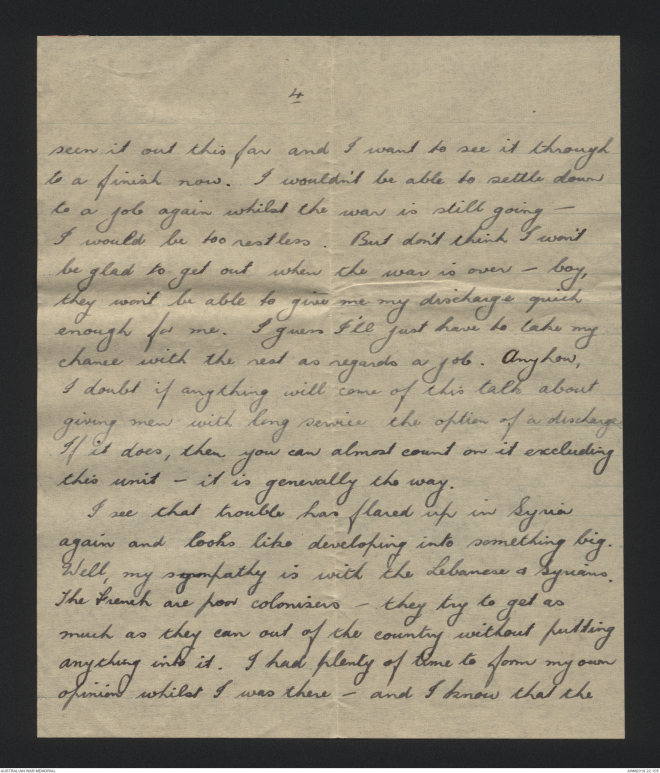 4
seen it out this far and I want to see it through
to a finish now. I wouldn't be able to settle down
to a job again whilst the war is still going —
I would be too restless. But don't think I won't
be glad to get out when the war is over — boy,
they won't be able to give me my discharge quick
enough for me. I guess I'll just have to take my
chance with the rest as regards a job. Anyhow,
I doubt if anything will come of this talk about
giving men with long service the option of a discharge.
If it does, then you can almost count on it excluding
this unit — it is generally the way.
I see that trouble has flared up in Syria
again and looks like developing into something big.
Well, my sympathy is with the Lebanese & Syrians.
The French are poor colonisers — they try to get as
much as they can out of the country without putting
anything into it. I had plenty of time to form my own
opinion whilst I was there — and I know that the
AUSTRALIAN WAR MEMORIAL